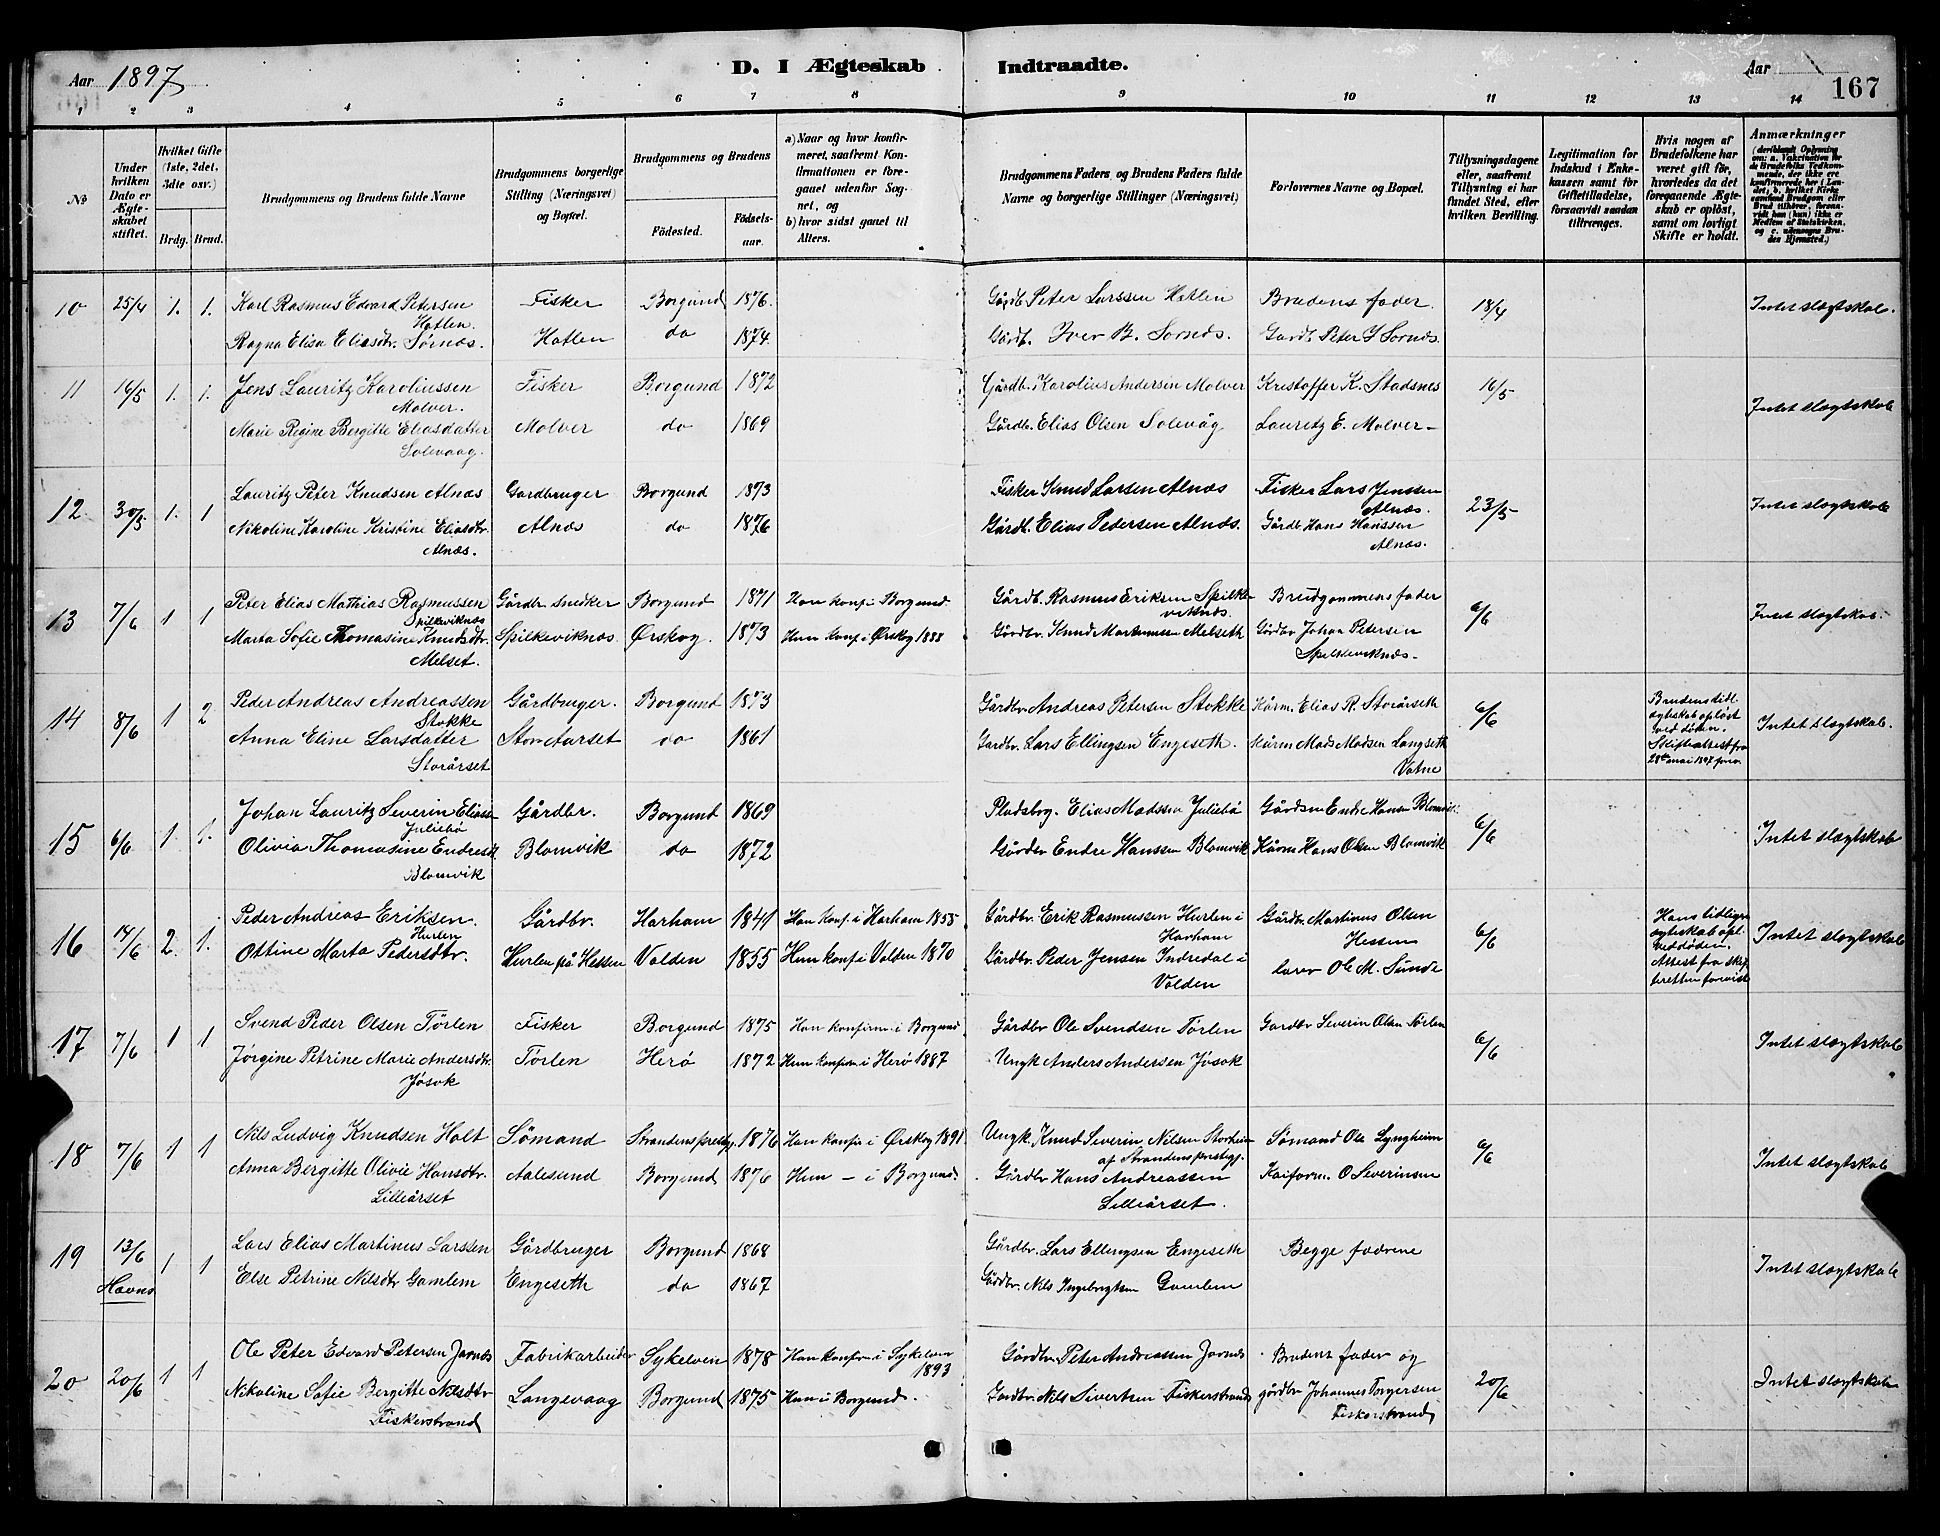 Aar 1897
D. I Ægteskab Indtraadte.
Aar
167
1 2 3 4 5 6 7 8 9 10 11 12 13 14
No
Under hvilken Dato er Ægteskabet stiftet.
Hvilket Gifte (1ste, 2det, 3die osv.)
Brdg. Brud.
Brudgommens og Brudens fulde Navne
Brudgommens borgerlige Stilling (Næringsvei) og Bopæl.
Brudgommens og Brudens
Födested.
Födsels-aar.
a) Naar og hvor konfirmeret, saafremt Konfirmationen er foregaaet udenfor Sognet, og
b) hvor sidst gaaet til Alters.
Brudgommens Faders og Brudens Faders fulde Navne og borgerlige Stillinger (Næringsvei)
Forlovernes Navne og Bopæl.
Tillysningsdagene eller, saafremt Tillysning ei har fundet Sted, efter hvilken Bevilling.
Legitimation for Indskud i Enkekassen samt för Giftetilladelse, forsaavidt saadan tiltrænges.
Hvis nogen af Brudefolkene har været gift för, hvorledes da det foregaaende Ægteskab er oplöst, samt om lovligt Skifte er holdt.
Anmærkninger
10 25/4 1. 1. Karl Rasmus Edvard Petersen Hatlen. Fisker Borgund 1876. Gårdb. Peter Larssen Hatlen Brudens fader. 18/4 Intet slægtskab.
Ragna Elisa Eliasdtr. Sørnæs. Hatlen do 1874. Gårdb. Iver B. Sornæs. Gardb. Peter I Sornæs.
11 16/5 1. 1. Jens Lauritz Karoliussen Molver. Fisker Borgund 1872 Gårdb. Karolius Andersin Molver Kristoffer K. Stadsnes 16/5 Intet slægtskab
Marie Regine Bergitte Eliasdatter Solevaag. Molver do 1869 Gårdb. Elias Olsen Solevåg Lauritz E. Molver
12. 30/5 1. 1 Lauritz Peter Knudsen Alnæs Gardbruger Borgund 1873 Fisker Knud Larsen Alnæs Fisker Lars Jenssen Alnæs. 23/5 Intet slægtskab
Nikoline Karoline Kristine Eliasdtr. Alnæs. Alnæs do 1876 Gårdb. Elias Pedersen Alnæs. Gårdb Hans Hanssen Alnæs.
13 7/6 1 1 Peter Elias Mathias Rasmussen Spilkeviknæs Gårdbr. snedker Borgund 1871 Han konf i Borgund Gårdb. Rasmus Eriksen Spilkeviknæs. Brudgommens fader 6/6 Intet slægtskab.
Marta Sofie Thomasine Knudsdtr. Melset. Spilkeviknæs Ørskog. 1873 Hun konf. i Ørskog 1888 Gårdbr Knud Martinussen Melseth Gårdbr Johan Petersen Spilkeviknæs.
14 8/6 1 2 Peder Andreas Andreassen Stokke Gårdbruger. Borgund 1873 Gårdbr Andreas Petersen Stokke Kårm. Elias R. Storårseth 6/6 Brudens tidl. ægteskab opløst ved døden. Skifteattest fra 28de mai 1897 forev. Intet slægtskab.
Anna Eline Larsdatter Storårset Stor Aarset do 1861 Gardbr. Lars Ellingsen Engeseth. Kårm Mads Madsen Langseth Vatne
15 6/6 1. 1. Johan Lauritz Severin Eliass. Juliebø Gårdbr. Borgund 1869 Pladsbrg. Elias Madssen Juliebø Gårdsm Endre Hansen Blomvik. 6/6 Intet slægtskab
Olivia Thomasine Endresdt. Blomvik Blomvik do 1872 Gårdbr Endre Hanssen Blomvik Kårm Hans Olsen Blomvik
16 14/6 2. 1. Peder Andreas Eriksen. Hurlen Gårdbr. Harham 1841 Han konf. i Harham 1855 Gårdbr. Erik Rasmussen Hurlen i Harham Gårdbr. Martinus Olsen Hessen 6/6 Hans tidligre ægteskab opl. ved døden. Attest fra skifteretten forevist Intet slægtskab
Ottine Marta Pedersdtr. Hurlen på Hessen Volden 1855 Hun konf i Volden 1870 Gårdbr. Peder Jensen Indredal i Volden lærer Ole M. Sunde
17 7/6 1 1 Svend Peder Olsen Tørlen Fisker Borgund 1875 Han konfirm. i Borgund Gårdbr Ole Svendsen Tørlen Gardbr Severin Olsen Tørlen 6/6 Intet slægtskab
Jørgine Petrine Marie Andersdtr. Jøsok Tørlen Herø 1872 Hun konfirm i Herø 1887 Ungk Anders Andersen Jøsok
18 7/6 1 1 Nils Ludvig Knudsen Holt Sømand Strandens præstgj. 1876 Han konfir i Ørskog 1891 Ungk. Knud Severin Nilsen Storheim af Strandens præstegj. Sømand Ole Lyngheim 6/6 Intet slægtskab
Anna Bergitte Olivie Hansdtr. Lilleårset Aalesund Borgund 1876 Hun — i Borgund. Gårdbr Hans Andreassen Lilleårset. Kaiform. O Severinsen
19 13/6 Havns 1 1 Lars Elias Martinus Larssen Gårdbruger Borgund 1868 Gårdbr. Lars Ellingsen Engeseth Begge fædrene Intet slægtskab
Else Petrine Nilsdtr Gamlem Engeseth do 1867 Gårdbr. Nils Ingebrigtsen Gamlem
20 20/6 1 1 Ole Peter Edvard Petersen Jarnæs Fabrikarbeider Sykelven 1878 Han konfirm i Sykelven 1893 Gårdbr Peter Andreassen Jarnæs Brudens fader og 20/6 Intet slægtskab
Nikoline Sofie Bergitte Nilsdtr Fiskerstrand Langevaag Borgund 1875 Hun i Borgund. Gardbr Nils Sivertsen Fiskerstrand gårdbr Johannes Torgersen Fiskerstrand